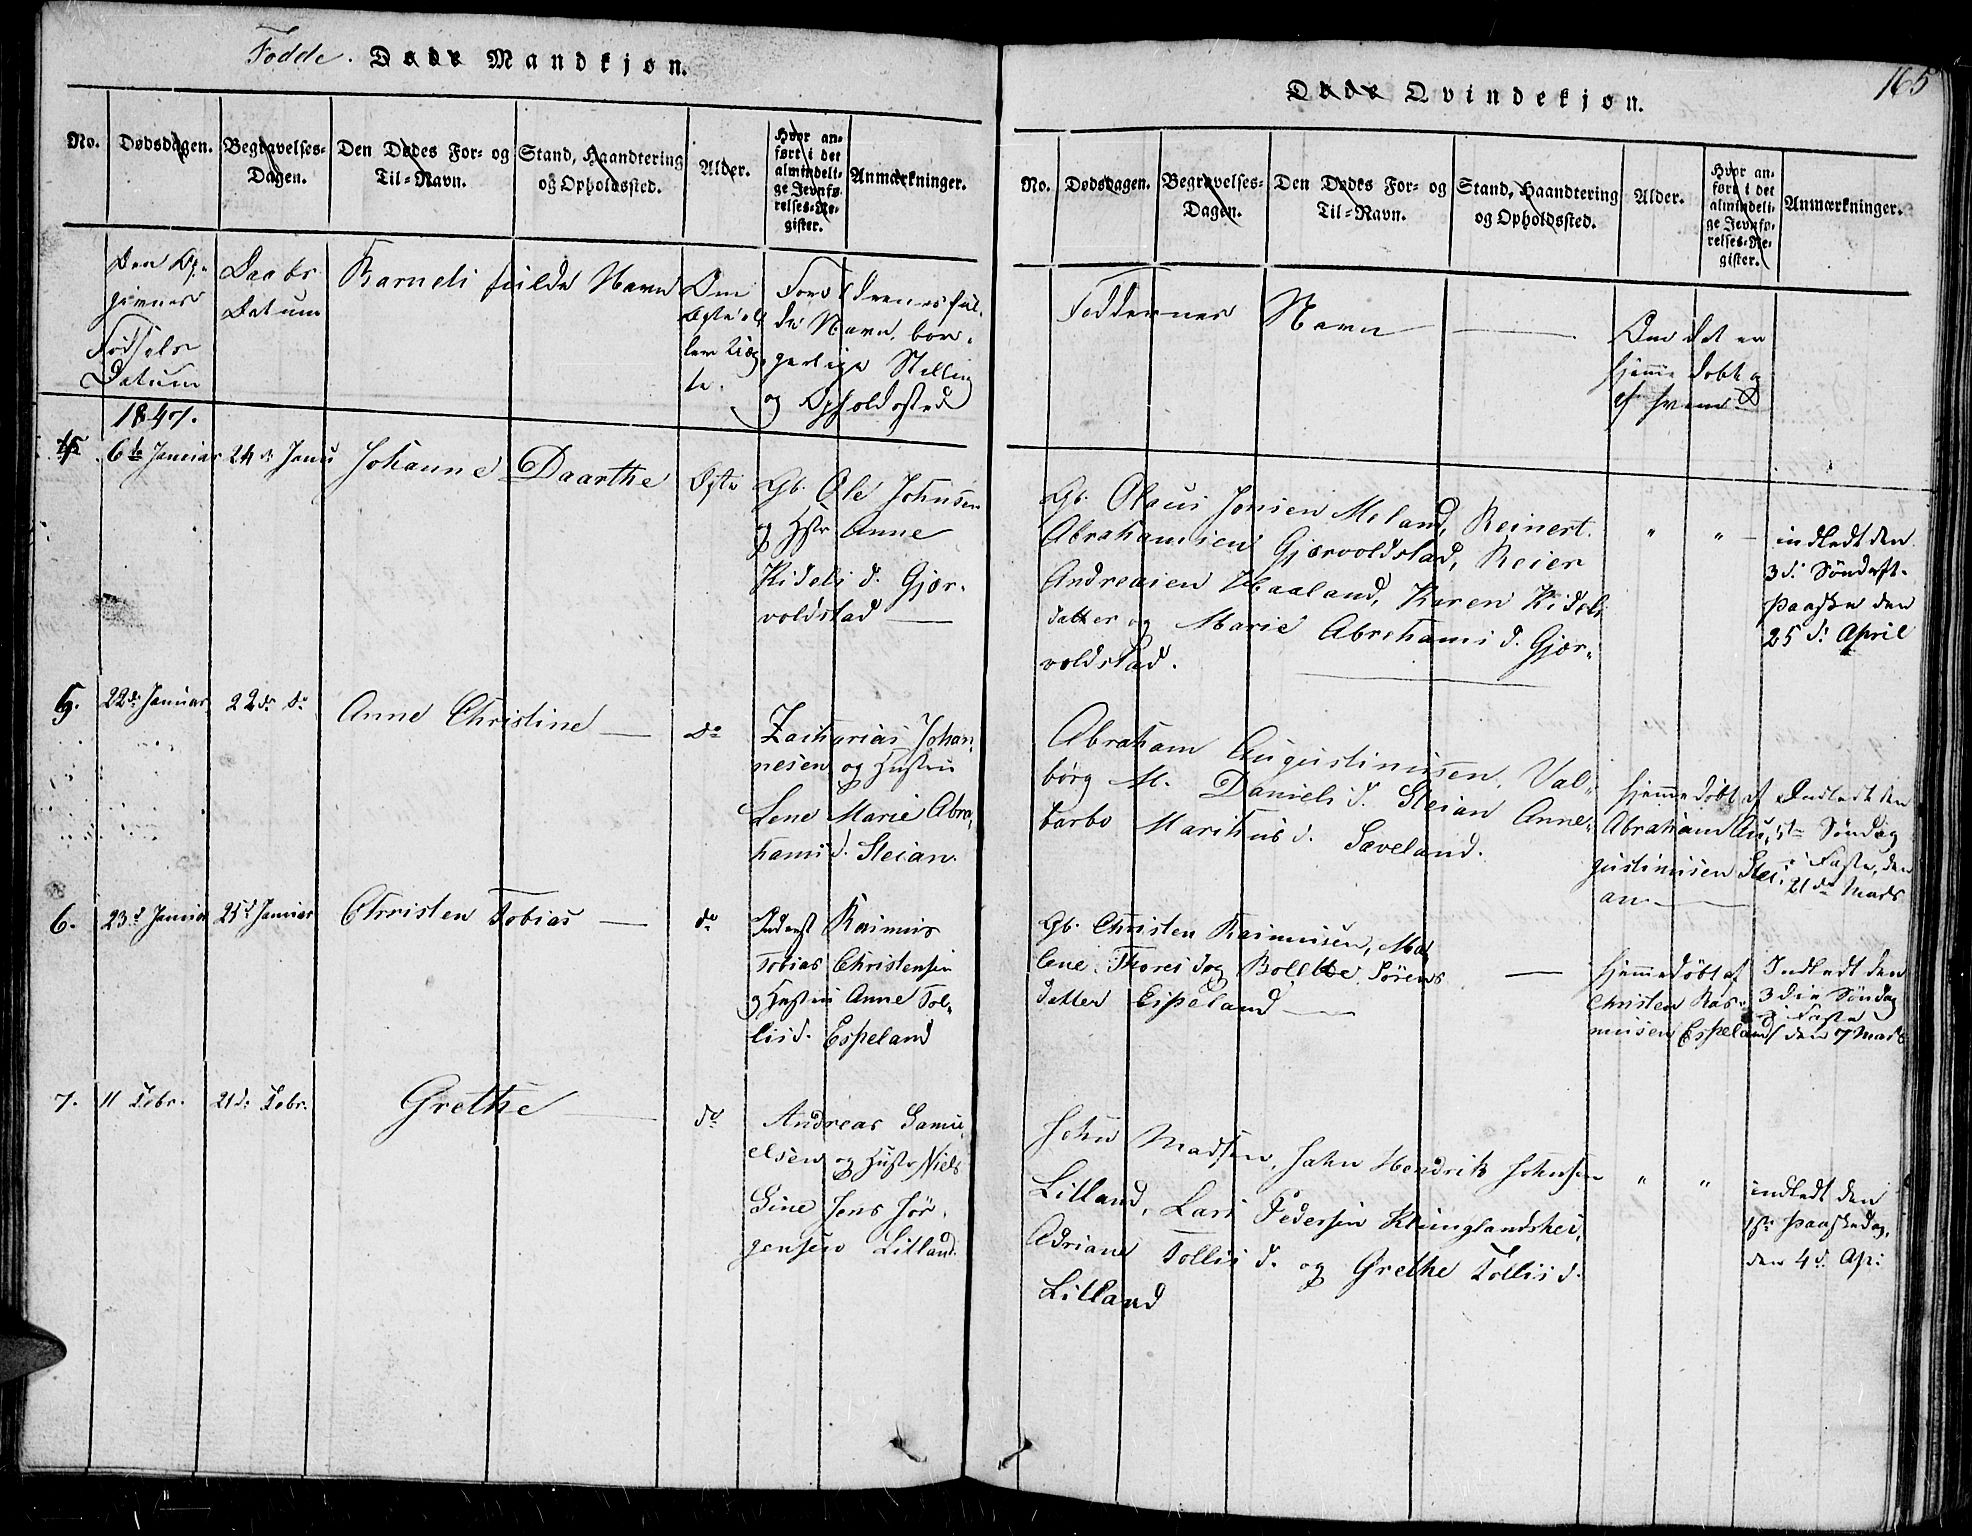 Fødde. Døde Mandkjøn.
No. Dødsdagen. Begravelses-Dagen. Den Dødes For- og Til-Navn. Stand, Haandtering og Opholdssted. Alder. Hvor anført i det almindelige Jevnførelses-Register. Anmærkninger.
Fødsels
Datum
Daabs
Datum
Barnets fulde Navn
Om
Ægte el
ler Uæg
te.
Forældrenes ful-
de Navn, bor-
gerlige Stilling
og Opholdssted
1847.
6te Januar 24de Janu Johanne Daarthe Ægte Gb. Ole Johnsen
og Hstr Anne
Kidels d. Gjer-
voldstad
5. 22de Januar 22de do Anne Christine do Zacharias Johan-
nesen og Hustru
Lene Marie Abra-
hams d. Steian
6. 23d Januar 25d Januar Christen Tobias do Inderst Rasmus
Tobias Christensen
og Hustru Anne Tol-
lis d. Espeland
7. 11 Febr. 21d: Febr. Grethe do Andreas Samu-
elsen og Hustr Niels
Sine Jens Jør-
gensen Lilland.
165
Døde Qvindekjøn.
No. Dødsdagen. Begravelses-Dagen. Den Dødes For- og Til-Navn. Stand, Haandtering og Opholdssted. Alder. Hvor anført i det almindelige Jevnførelses-Register. Anmærkninger.
Faddernes Navn
Om det er
hjemmedøbt og
af hvem
Gb. Olaus Jonsen Meland, Reinert
Abrahamsen Gjervoldstad, Reier
Andreasen Haaland, Karen Kidels
datter og Marie Abrahams d. Gjer-
voldstad.
" "
indledt den
3d: Søndeft.
Paaske den
25d: April
Abraham Augustinusen, Val-
børg M. Daniels d. Steian Anne-
barbo Marthus d. Sæveland.
hjemmedøbt af
Abraham Au-
gustinusen Stei-
an
Indledt den
5te Søndag
i Faste, den
21de Mads
Gb. Christen Rasmusen, Ma-
lene Thores d og Bolette Sørens
datter Espeland
hjemmedøbt af
Christen Ras-
musen Espeland
Indledt den
3die Søndag
i Faste
den 7 Mads
John Madsen, John Hendrik Johnsen
Lilland, Lars Pedersen Klunglandshei,
Adriane Tollis d. og Grethe Tollis d.
Lilland
" "
indledt den
1ste Paaskedag,
den 4d: Apr: